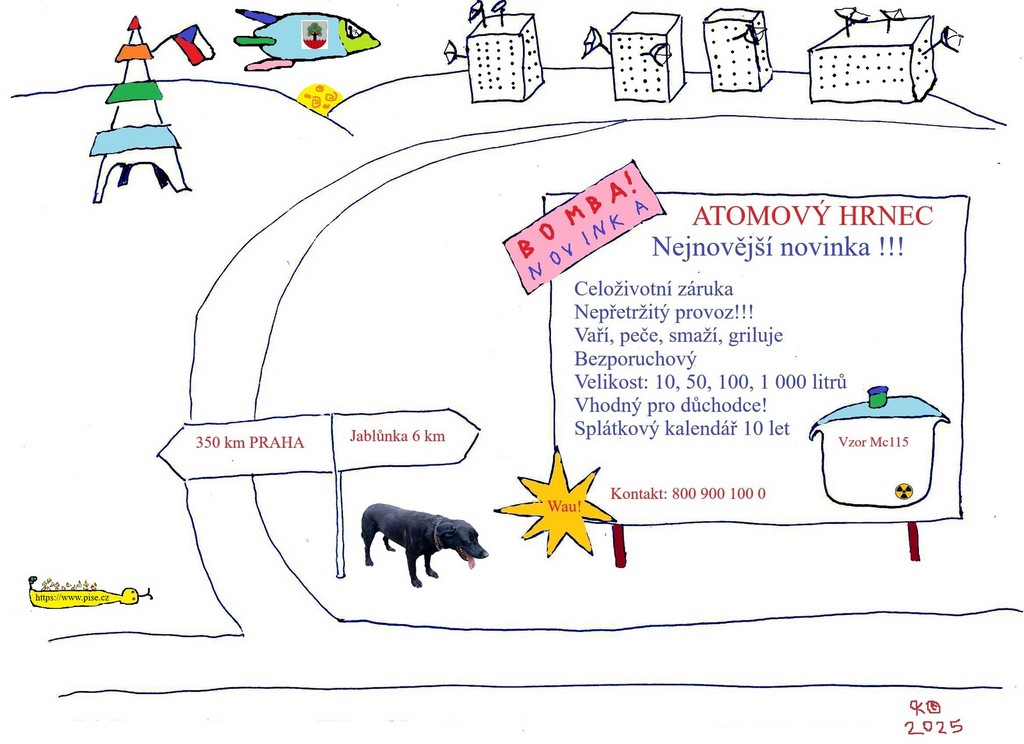 BOMBA!
NOVINKA
ATOMOVÝ HRNEC
Nejnovější novinka !!!
Celoživotní záruka
Nepřetržitý provoz!!!
Vaří, peče, smaží, griluje
Bezporuchový
Velikost: 10, 50, 100, 1 000 litrů
Vhodný pro důchodce!
Splátkový kalendář 10 let
Vzor Mc115
Kontakt: 800 900 100 0
Wau!
350 km PRAHA
Jablůnka 6 km
https://www.pise.cz
2025